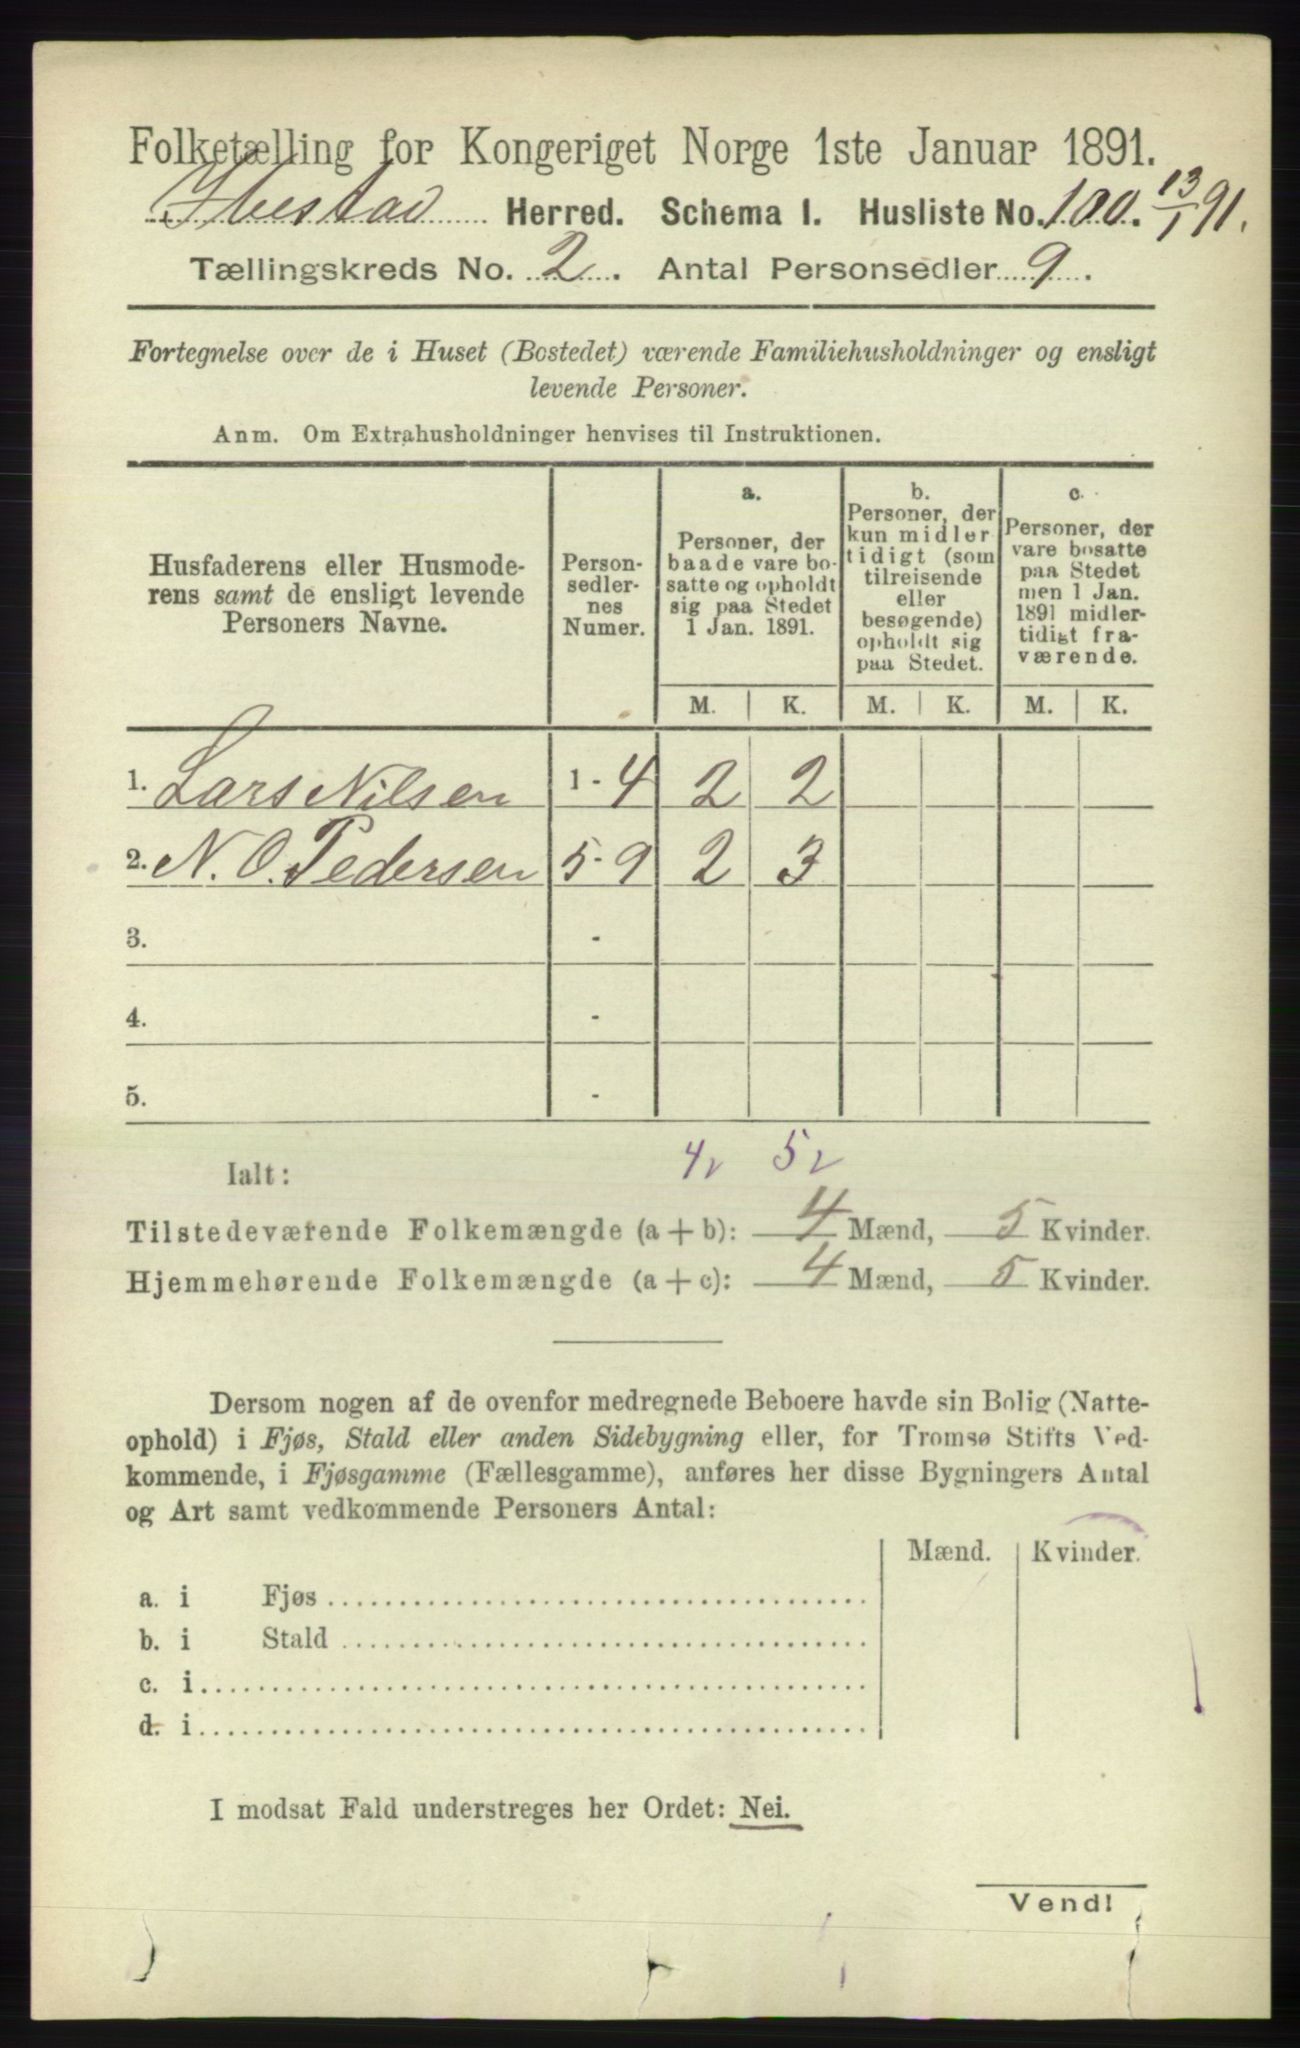 Folketælling for Kongeriget Norge 1ste Januar 1891.
Ibestad Herred. Schema I. Husliste No. 100. 13/1 91.
Tællingskreds No. 2. Antal Personsedler 9.
Fortegnelse over de i Huset (Bostedet) værende Familiehusholdninger og ensligt
levende Personer.
Anm. Om Extrahusholdninger henvises til Instruktionen.
Husfaderens eller Husmode-
rens samt de ensligt levende
Personers Navne.
Person-
sedler-
nes
Numer.
a.
Personer, der
baade vare bo-
satte og opholdt
sig paa Stedet
1 Jan. 1891.
b.
Personer, der
kun midler-
tidigt (som
tilreisende
eller
besøgende)
opholdt sig
paa Stedet.
c.
Personer, der
vare bosatte
paa Stedet
men 1 Jan.
1891 midler-
tidigt fra-
værende.
M. K. M. K. M. K.
1. Lars Nilsen 1 - 4 2 2
2. N. O. Pedersen 5 - 9 2 3
3. -
4. -
5. -
Ialt: 4 v 5 v
Tilstedeværende Folkemængde (a + b): 4 Mænd, 5 Kvinder.
Hjemmehørende Folkemængde (a + c): 4 Mænd, 5 Kvinder.
Dersom nogen af de ovenfor medregnede Beboere havde sin Bolig (Natte-
ophold) i Fjøs, Stald eller anden Sidebygning eller, for Tromsø Stifts Ved-
kommende, i Fjøsgamme (Fællesgamme), anføres her disse Bygningers Antal
og Art samt vedkommende Personers Antal:
Mænd. Kvinder.
a. i Fjøs
b. i Stald
c. i
d. i
I modsat Fald understreges her Ordet: Nei.
Vend!